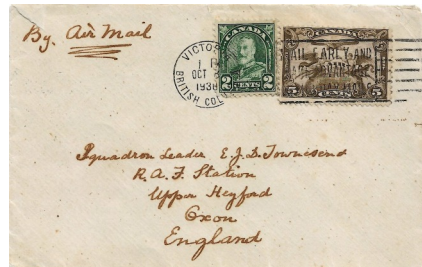 By Air Mail
VICTOR
1 P
OCT
193
BRITISH COL
CANADA
2 CENTS 2
CANADA
AIL EARLY AND
5 CENTS 5
Squadron Leader E.J.D. Townesend
R.A.F. Station
Upper Heyford
Oxon
England